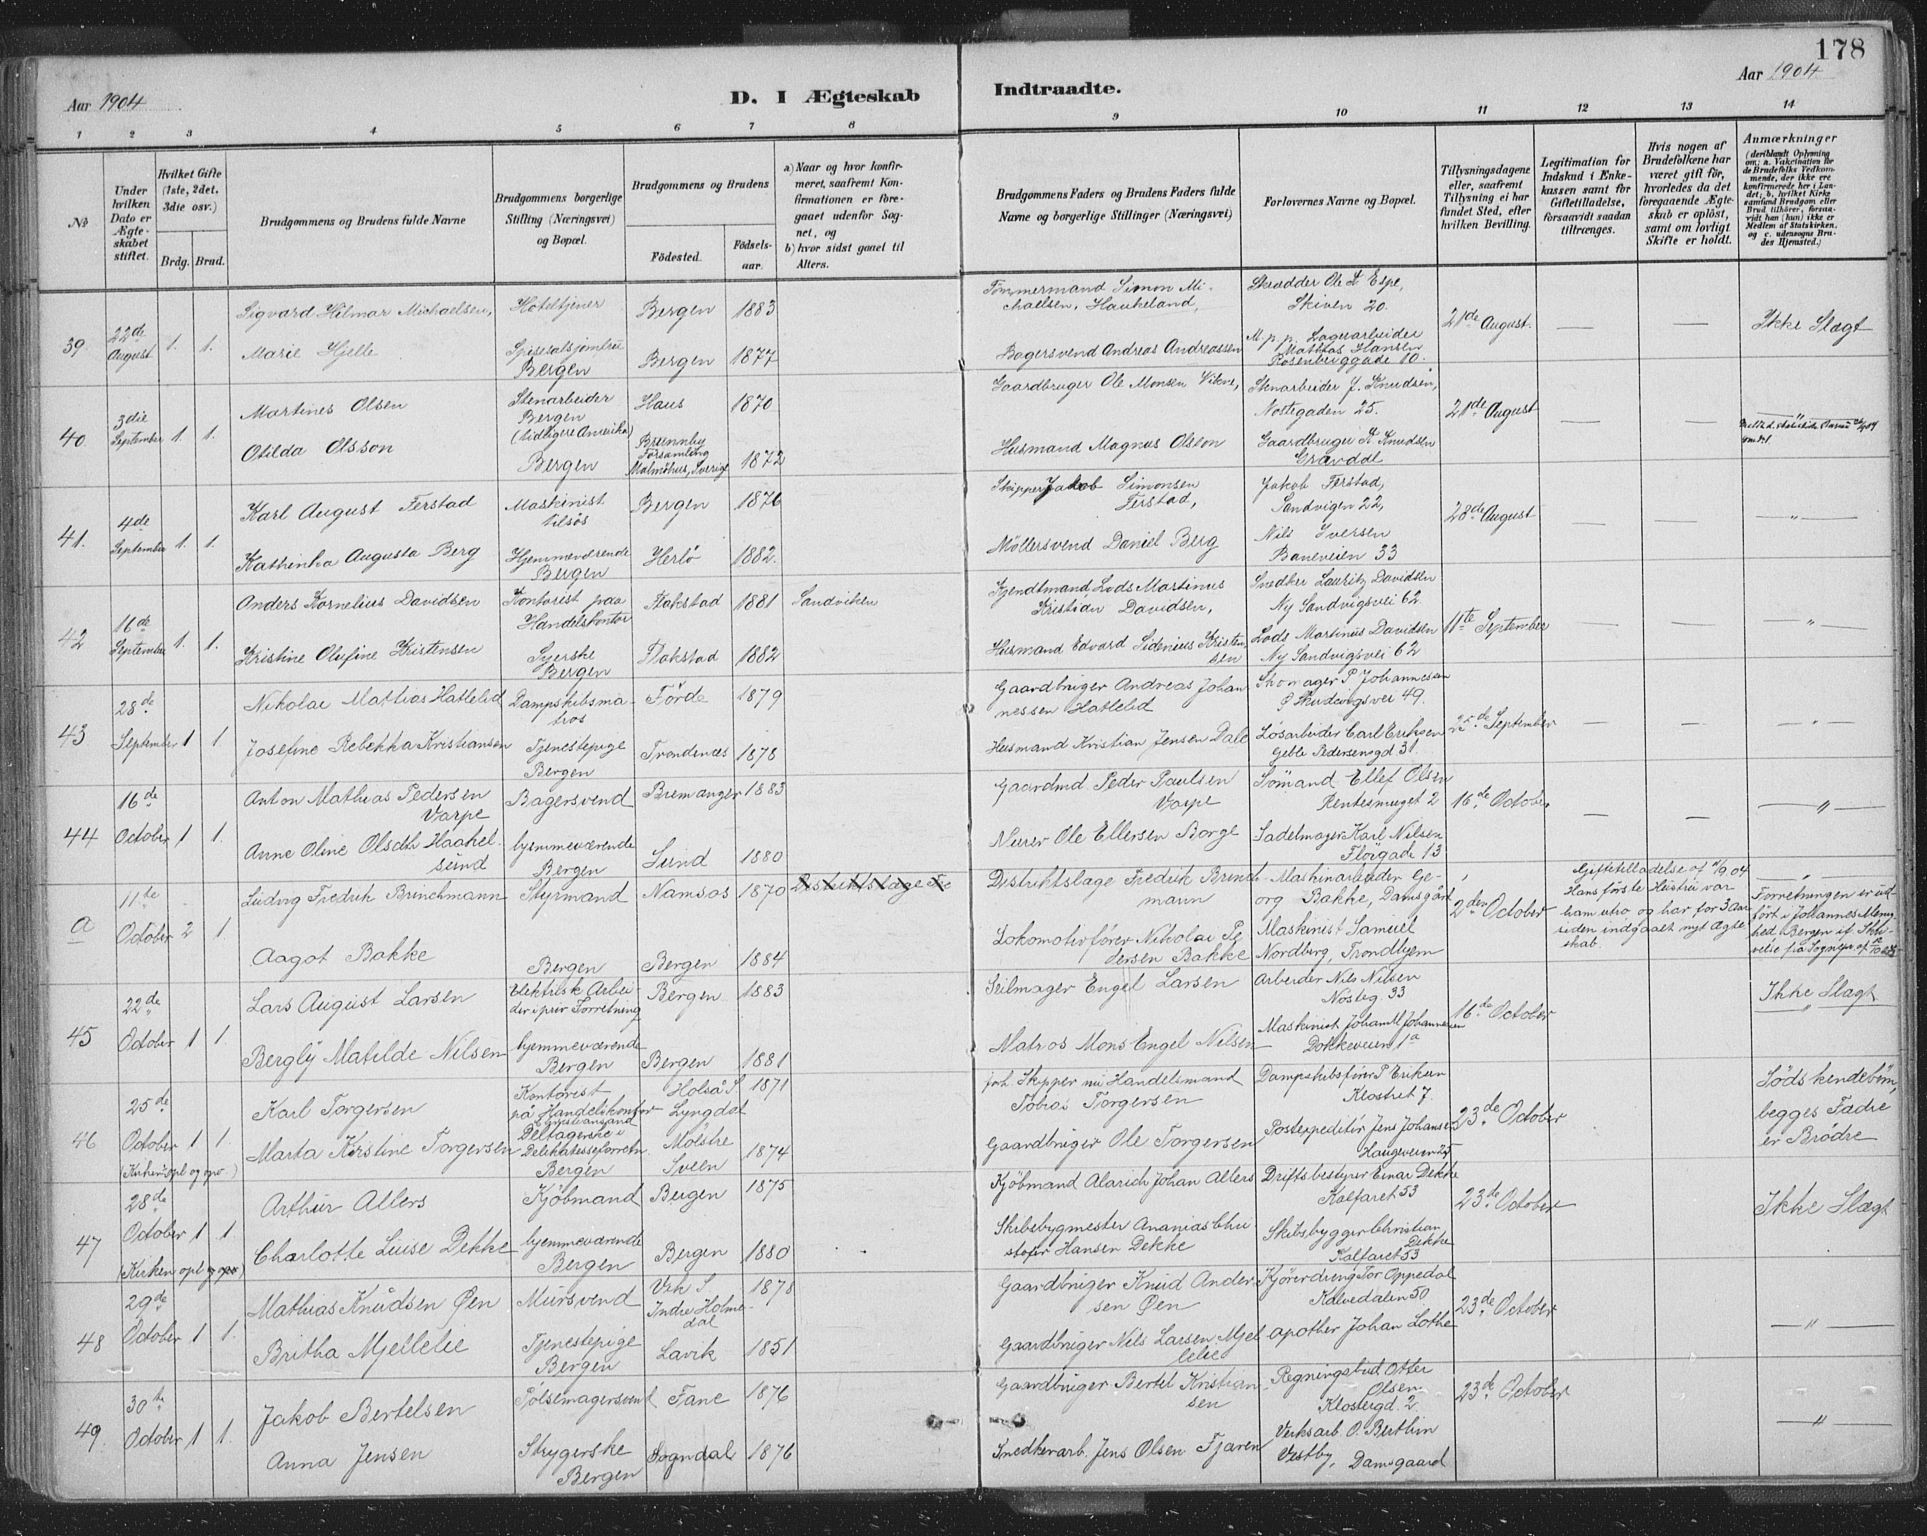 178
Aar 1904
D. I Ægteskab
Indtraadte.
Aar 1904
1 2 3 4 5 6 7 8 9 10 11 12 13 14
№
Under hvilken Dato er Ægteskabet stiftet.
Hvilket Gifte (1ste, 2det, 3die osv.)
Brdg. Brud.
Brudgommens og Brudens fulde Navne
Brudgommens borgerlige Stilling (Næringsvei) og Bopæl.
Brudgommens og Brudens
Födested.
Födsels-aar.
a) Naar og hvor konfirmeret, saafremt Konfirmationen er foregaaet udenfor Sognet, og
b) hvor sidst gaaet til Alters.
Brudgommens Faders og Brudens Faders fulde Navne og borgerlige Stillinger (Næringsvei)
Forlovernes Navne og Bopæl.
Tillysningsdagene eller, saafremt Tillysning ei har fundet Sted, efter hvilken Bevilling.
Legitimation for Indskud i Enkekassen samt for Giftetilladelse, forsaavidt saadan tiltrænges.
Hvis nogen af Brudefolkene har været gift för, hvorledes da det foregaaende Ægteskab er oplöst, samt om lovligt Skifte er holdt.
Anmærkninger
(deriblandt Oplysning om: a. Vakcination for de Brudefolks Vedkommende, der ikke ere konfirmerede her i Landet; b. hvilket Kirkesamfund Brudgom eller Brud tilhörer, forsaavidt han (hun) ikke er Medlem af Statskirken, og c. udensogns Brudes Hjemsted.)
39 22de August 1. 1.
Sigvard Hilmar Michaelsen, Hoteltjener Bergen 1883
Tömmermand Simon Michaelsen, Haukeland,
Skrædder Ole Espe, Skiven 20.
21de August. — — Ikke Slægt
Marie Hjelle Bergen Bergen 1877
Bagersvend Andreas Andreassen
M. p. p. Lagerarbeider Mathias Hansen Rosenberggade 10.
40 3die September 1. 1.
Martines Olsen Stenarbeider Bergen (tidligere Amerika) Haus 1870
Gaardbruger Ole Monsen Vikne,
Stenarbeider J. Knudsen, Nostegaden 25.
21de August
Otilda Olsson Bergen Brunnby Forsamling Malmöhus, Sverige 1872
Husmand Magnus Olsson
Gaardbruger Knudsen Gravdal
41. 4de September 1. 1.
Karl August Ferstad Maskinist tilsös Bergen 1876
Skipper Jakob Simonsen Ferstad,
Jakob Ferstad, Sandvigen 22,
28de August — — — " —
Kathinka Augusta Berg Hjemmeværende Bergen Herlö 1882.
Möllersvend Daniel Berg
Nils Iversen Baneveien 33
42 16de September 1. 1.
Anders Kornelius Davidsen Kontorist paa Handelskontor Flakstad 1881 Sandviken
Lods Martinus Kristian Davidsen,
Snedker Lauritz Davidsen Ny Sandvigsvei 62
11te September — — — " —
Kristine Olufine Kristensen Syerske Bergen Flakstad 1882
Husmand Edvard Sidenius Kristensen
Lods Martinus Davidsen Ny Sandvigsvei 62
43 28de September 1 1.
Nikolai Mathias Hatlelid Dampskibsmatros Förde 1879
Gaardbruger Andreas Johannessen Hatlelid
Skomager P Johannesen Skudeviksvei 49.
25de September — — — " —
Josefine Rebekka Kristiansen Tjenestepige Bergen Trondenæs 1878
Husmand Kristian Jensen Dale
Lösarbeider Carl Eriksen Geble Pedersensgd 31.
44 16de October 1 1.
Anton Mathias Pedersen Varpe Bagersvend Bremanger 1883
Gaardmd Peder Paulsen Varpe
Sömand Ellef Olsen Rentesmuget 2
16de October — — — " —
Anne Oline Olsdtr Haakelsund hjemmeværende Bergen Sund 1880
Murer Ole Ellersen Borge
Sadelmager Karl Nilsen Flöigade 13
a 11te October 2 1.
Ludvig Fredrik Brinchmann Styrmand Namsos 1870
Distriktslæge Fredrik Brinchmann
Maskinarbeider Georg Bakke, Damsgård
2den October
Giftetilladelse af 1/9 04 Hans förste Hustru var ham utro og har for 3 Aar siden indgaaet nyt Ægteskab.
Forretningen er udfört i Johannes Menighed, Bergen
Aagot Bakke Bergen Bergen 1884
Lokomotivförer Nikolai Pedersen Bakke
Maskinist Samuel Nordberg, Trondhjem
45 22de October 1 1.
Lars August Larsen Elektrisk Arbeider i priv Forretning Bergen 1883
Seilmager Engel Larsen
Arbeider Nils Nilsen Nösteg. 33
16de October Ikke Slægt — " —
Bergly Matilde Nilsen hjemmeværende Bergen Bergen 1881
Matros Mons Engel Nilsen
Maskinist Johan M Johannesen Dokkeveien 1a
46 25de October 1 1. (Kirken opl og opv.)
Karl Torgersen Kontorist på Handelskontor Lyngdal 1871
Skipper nu Handelsmand Tobias Torgersen
Dampskibsförer P Eriksen Klostret 7.
23de October Södskendebörn, begges Fadre er Brödre
Marta Kirstine Torgersen Deltagerske i Delikatesseforretn. Bergen Mölstre Sveen 1874
Gaardbruger Ole Torgersen
Postexpeditör Jens Johansen Haugeveien 25
47 28de October 1 1. (Kirken opl og opv)
Arthur Allers Kjöbmand Bergen 1875
Kjöbmand Alarich Johan Allers
Driftsbestyrer Einar Dekke Kalfaret 53
23de October Ikke Slægt
Charlotte Luise Dekke hjemmeværende Bergen Bergen 1880
Skibsbygmester Ananias Christofer Hansen Dekke
Skibsbygger Christian Dekke Kalfaret 53
48 29de October 1 1.
Mathias Knudsen Øen Mursvend Vik S Indre Holmedal 1878
Gaardbruger Knud Andersen Øen
Kjöredreng Tor Oppedal Kalvedalen 50
23de October — " —
Britha Mjellelie Tjenestepige Bergen Lavik 1851
Gaardbruger Nils Larsen Mjellelie
apother Johan Lothe
49. 30te October 1 1.
Jakob Bertelsen Pölsemagersvent Fane 1876
Gaardbruger Bertel Kristiansen
Regningsbud Otter Olsen Klostergd. 2.
23de October — " —
Anna Jensen Strygerske Bergen Sogndal 1876
Snedkerarb. Jens Olsen Fjæren
Verksarb. O. Berthin Vestby, Damsgaard